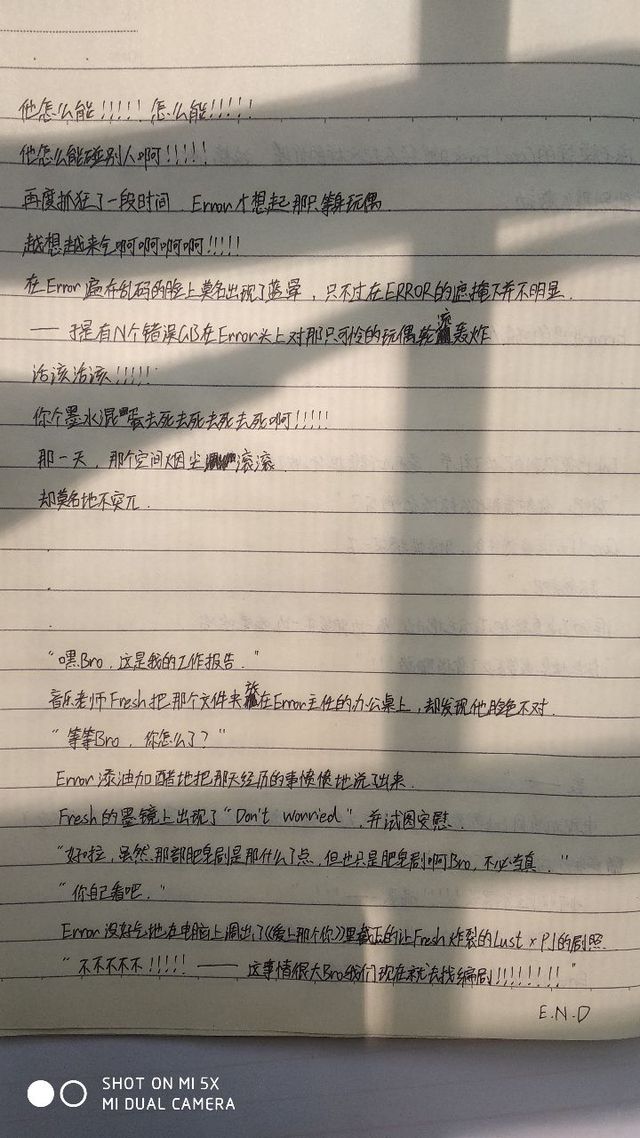 他怎么能!!!!! 怎么能!!!!!
他怎么能碰别人啊!!!!!
再度抓狂了一段时间,Error才想起那只等身玩偶.
越想越来气啊啊啊啊!!!!!
在Error遍布乱码的脸上莫名出现了蓝晕,只不过在ERROR的遮掩下并不明显.
——于是有N个错误GB在Error头上对那只可怜的玩偶轮流轰炸
活该活该!!!!!
你个墨水混蛋去死去死去死去死啊!!!!!
那一天,那个空间烟尘滚滚.
却莫名地不突兀.
“嘿Bro,这是我的工作报告."
音乐老师Fresh把那个文件夹放在Error主任的办公桌上,却发现他脸色不对.
“等等Bro,你怎么了?"
Error添油加醋地把那天经历的事情慢慢地说了出来.
Fresh的墨镜上出现了“Don't worried",并试图安慰.
“好啦,虽然那部肥皂剧是那什么了点,但也只是肥皂剧啊Bro,不必当真."
“你自己看吧."
Error没好气地在电脑上调出了《爱上那个你》里截下的让Fresh炸裂的Lust x PJ的剧照.
“不不不不不!!!!!——这事情很大Bro我们现在就去找编剧!!!!!!!!"
E.N.D
SHOT ON MI 5X
MI DUAL CAMERA